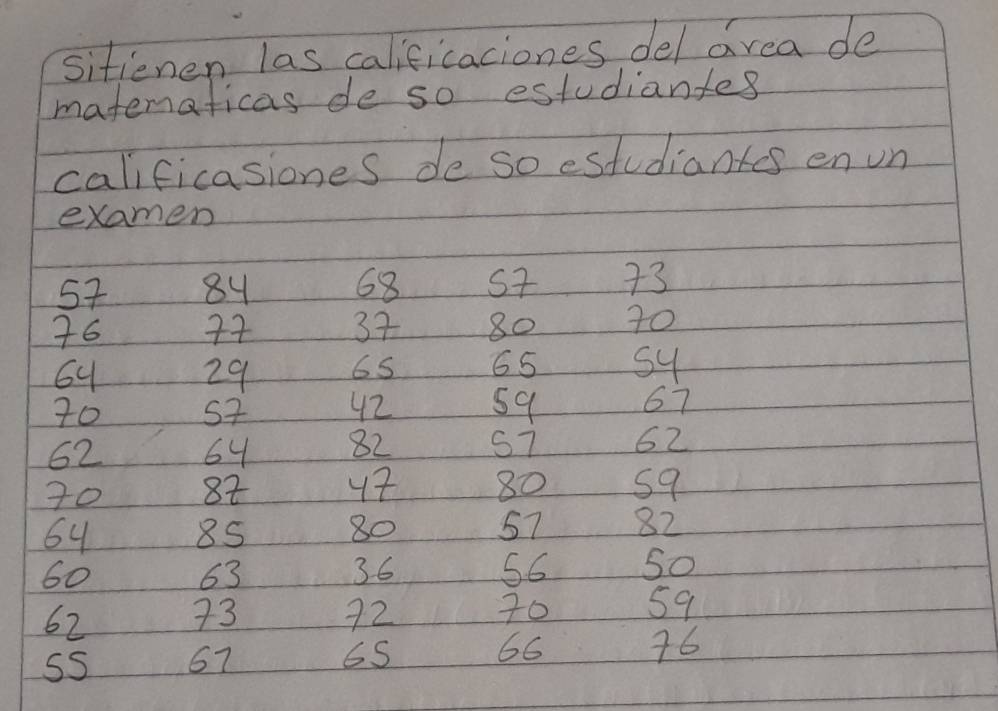 Sitienen las calificaciones del área de
matematicas de 50 estudiantes
calificasiones de 50 estudiantes en un
examen
57 84 68 57 73
76 77 37 80 70
64 29 65 65 54
70 57 42 59 67
62 64 82 57 62
70 87 47 80 59
64 85 80 57 82
60 63 36 56 50
62 73 72 70 59
55 67 65 66 76